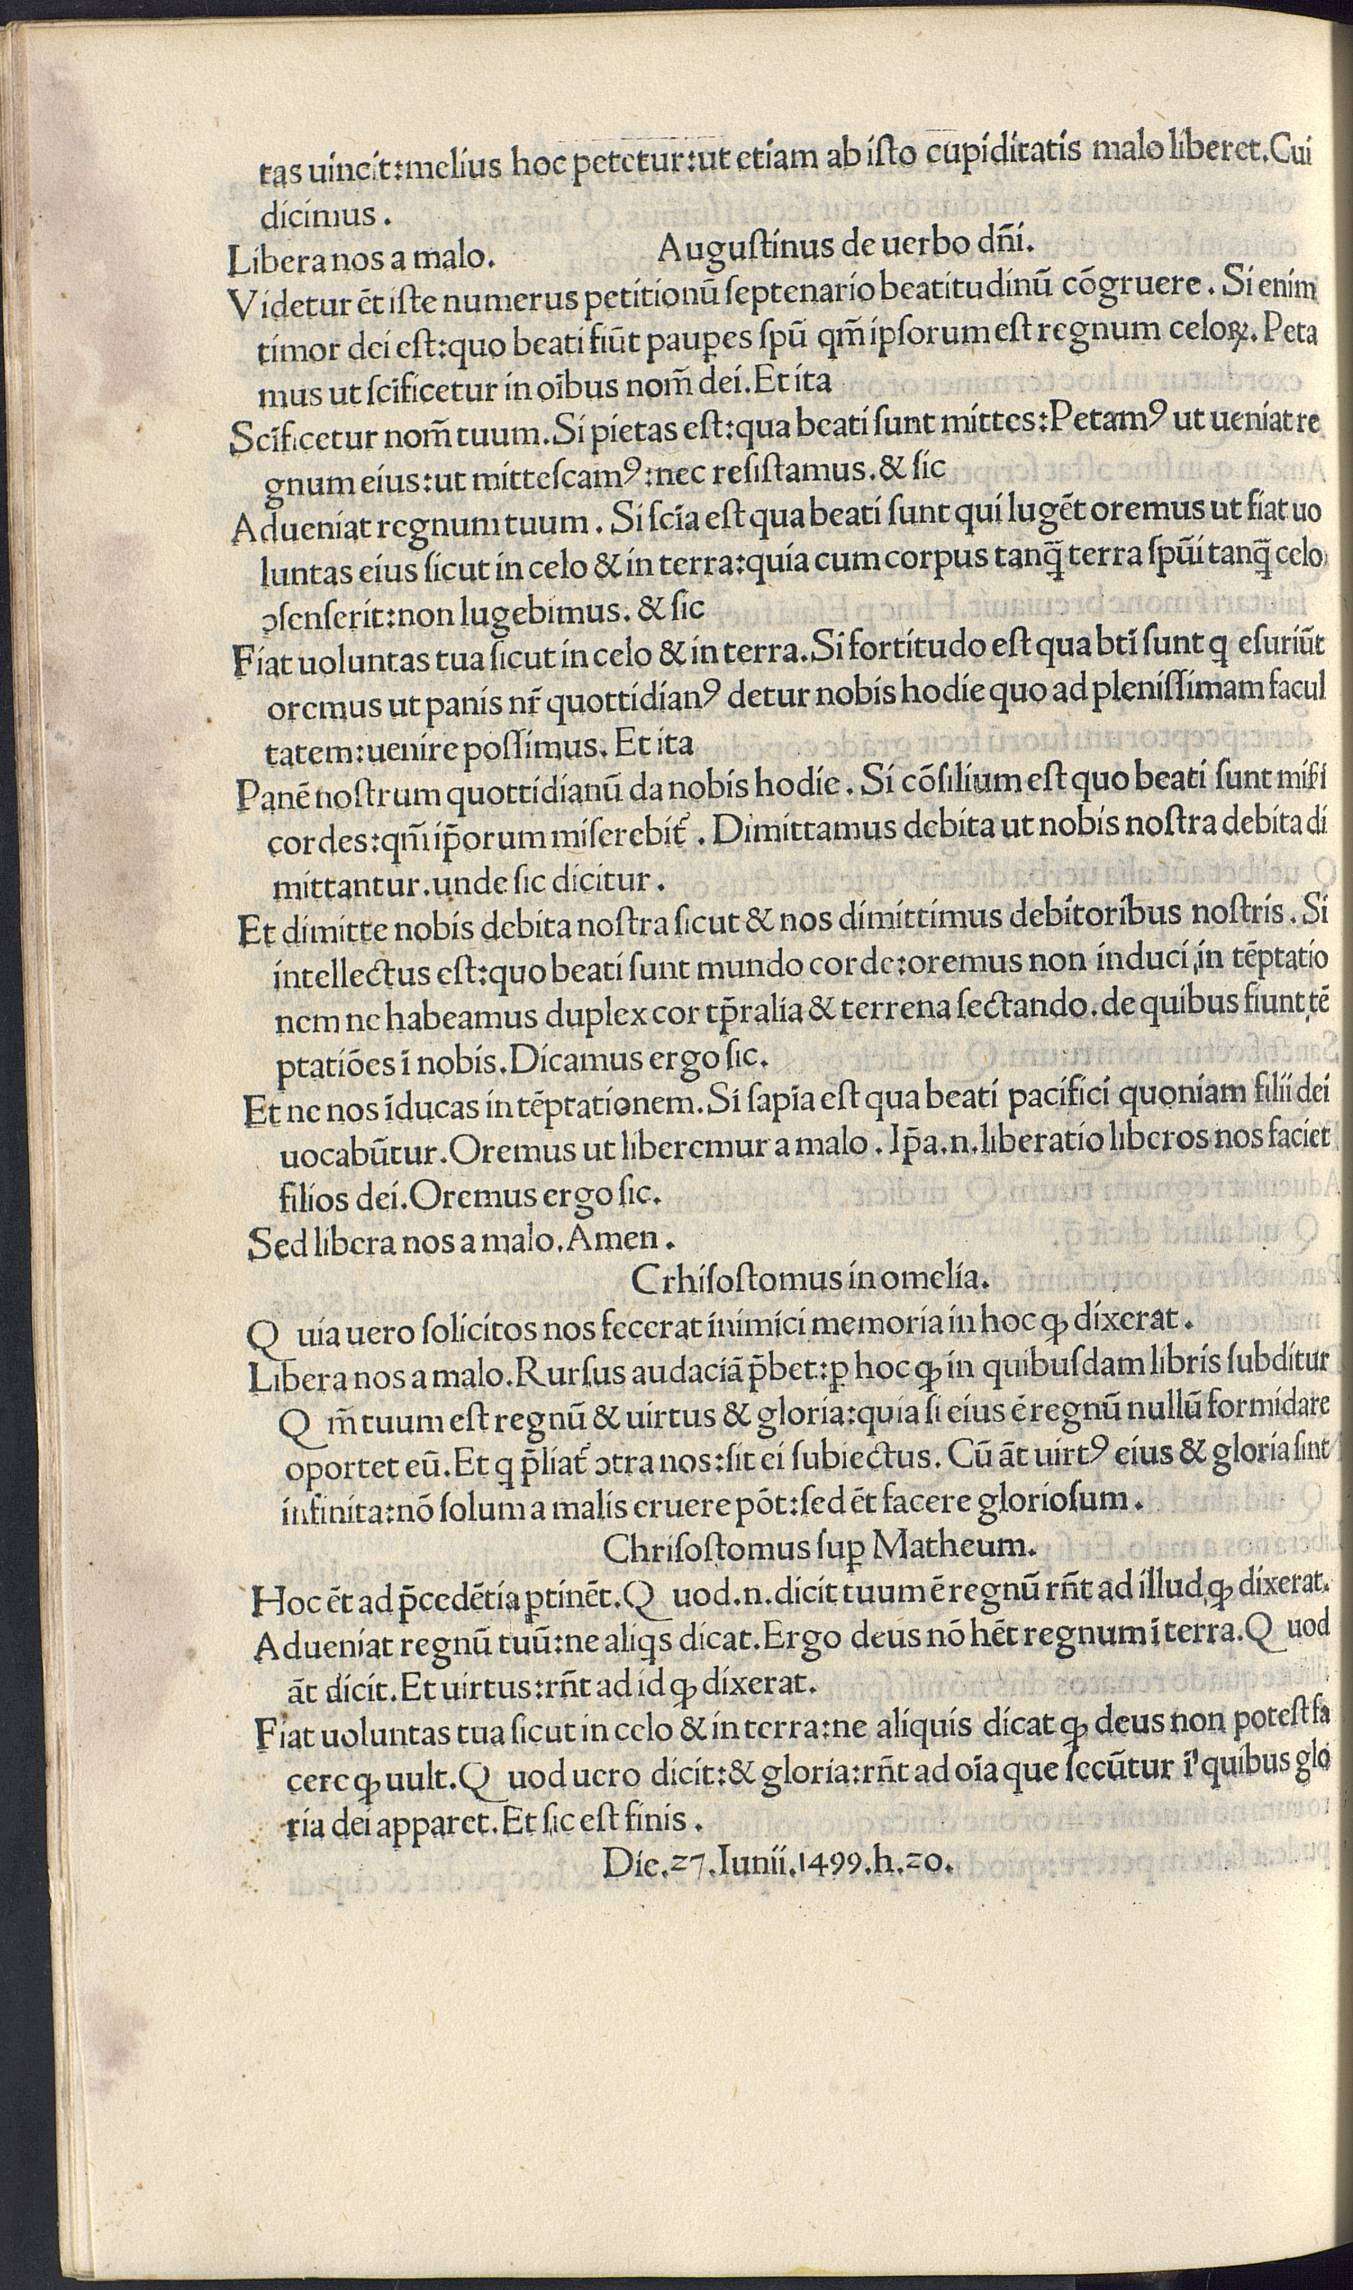 tas uincit:melius hoc petetur:ut etiam ab iſto cupiditatis malo liberet.Cui
dicimus.
Libera nos a malo. Auguſtinus de uerbo dn̄i.
Videtur ēt iſte numerus petitionū ſeptenario beatitudinū cōgruere. Si enim
timor dei eſt:quo beati fiūt paup̲es ſpū qm̄ ipſorum eſt regnum celoꝝ. Peta
mus ut ſcīficetur in oībus nom̄ dei. Et ita
Scīficetur nom̄ tuum. Si pietas eſt:qua beati ſunt mittes: Petamꝰ ut ueniat re
gnum eius:ut mitteſcamꝰ:nec reſiſtamus. & ſic
Adueniat regnum tuum. Si ſcīa eſt qua beati ſunt qui lugēt oremus ut fiat uo
luntas eius ſicut in celo & in terra:quia cum corpus tanq̄ terra ſpūi tanq̄ celo
ↄſenſerit:non lugebimus. & ſic
Fiat uoluntas tua ſicut in celo & in terra. Si fortitudo eſt qua btī ſunt q eſuriūt
oremus ut panis nr̄ quottidianꝰ detur nobis hodie quo ad pleniſſimam facul
tatem:uenire poſſimus. Et ita
Panē noſtrum quottidianū da nobis hodie. Si cōſilium eſt quo beati ſunt mīſi
cordes:qm̄ ip̄orum miſerebit᷑. Dimittamus debita ut nobis noſtra debita di
mittantur.unde ſic dicitur.
Et dimitte nobis debita noſtra ſicut & nos dimittimus debitoribus noſtris. Si
intellectus eſt:quo beati ſunt mundo corde:oremus non induci in tēptatio
nem ne habeamus duplex cor tp̄ralia & terrena ſectando.de quibus fiunt tē
ptatiōes ī nobis. Dicamus ergo ſic.
Et ne nos īducas in tēptationem. Si ſapīa eſt qua beati pacifici quoniam filii dei
uocabūtur. Oremus ut liberemur a malo. Ip̄a.n.liberatio liberos nos faciet
filios dei. Oremus ergo ſic.
Sed libera nos a malo. Amen.
Crhiſoſtomus in omelia.
Q uia uero ſolicitos nos fecerat inimici memoria in hoc ꝙ dixerat.
Libera nos a malo. Rurſus audaciā p̄bet:ꝑ hoc ꝙ in quibuſdam libris ſubditur
Q m̄ tuum eſt regnū & uirtus & gloria:quia ſi eius ē regnū nullū formidare
oportet eū. Et q p̄liat᷑ ↄtra nos:ſit ei ſubiectus. Cū āt uirtꝰ eius & gloria ſint
infinita:nō ſolum a malis eruere pōt:ſed ēt facere glorioſum.
Chriſoſtomus ſuꝑ Matheum.
Hoc ēt ad p̄cedētia ꝑtinēt. Q uod.n.dicit tuum ē regnū rn̄t ad illud ꝙ dixerat.
Adueniat regnū tuū:ne aliqs dicat. Ergo deus nō hēt regnum ī terra. Q uod
āt dicit. Et uirtus:rn̄t ad id ꝙ dixerat.
Fiat uoluntas tua ſicut in celo & in terra:ne aliquis dicat ꝙ deus non poteſt fa
cere ꝙ uult. Q uod uero dicit:& gloria:rn̄t ad oīa que ſecūtur ī quibus glo
ria dei apparet. Et ſic eſt finis.
Die.27.Iunii.1499.h.20.